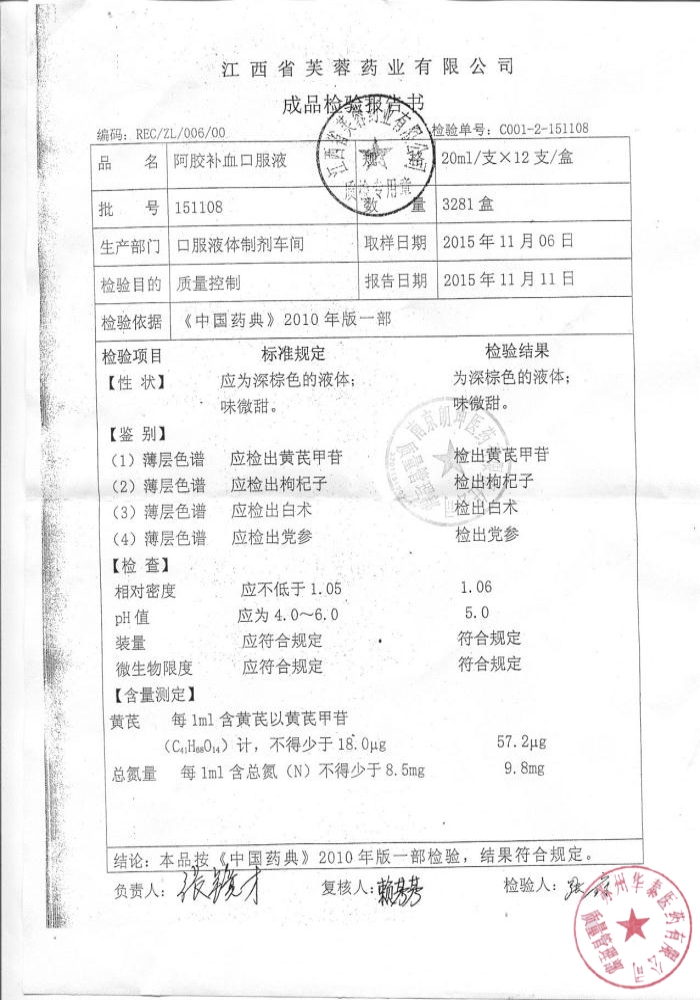 江西省芙蓉药业有限公司
成品检验报告书
编码：REC/ZL/006/00 检验单号：C001-2-151108
品 名 阿胶补血口服液 规 格 20ml/支×12支/盒
批 号 151108 数 量 3281盒
生产部门 口服液体制剂车间 取样日期 2015年11月06日
检验目的 质量控制 报告日期 2015年11月11日
检验依据 《中国药典》2010年版一部
检验项目 标准规定 检验结果
【性 状】 应为深棕色的液体； 为深棕色的液体；
味微甜。 味微甜。
【鉴 别】
（1）薄层色谱 应检出黄芪甲苷 检出黄芪甲苷
（2）薄层色谱 应检出枸杞子 检出枸杞子
（3）薄层色谱 应检出白术 检出白术
（4）薄层色谱 应检出党参 检出党参
【检 查】
相对密度 应不低于1.05 1.06
pH值 应为4.0～6.0 5.0
装量 应符合规定 符合规定
微生物限度 应符合规定 符合规定
【含量测定】
黄芪 每1ml含黄芪以黄芪甲苷
（C₄₁H₆₈O₁₄）计，不得少于18.0μg 57.2μg
总氮量 每1ml含总氮（N）不得少于8.5mg 9.8mg
结论：本品按《中国药典》2010年版一部检验，结果符合规定。
负责人： 复核人： 检验人：
江西省芙蓉药业有限公司
质检专用章